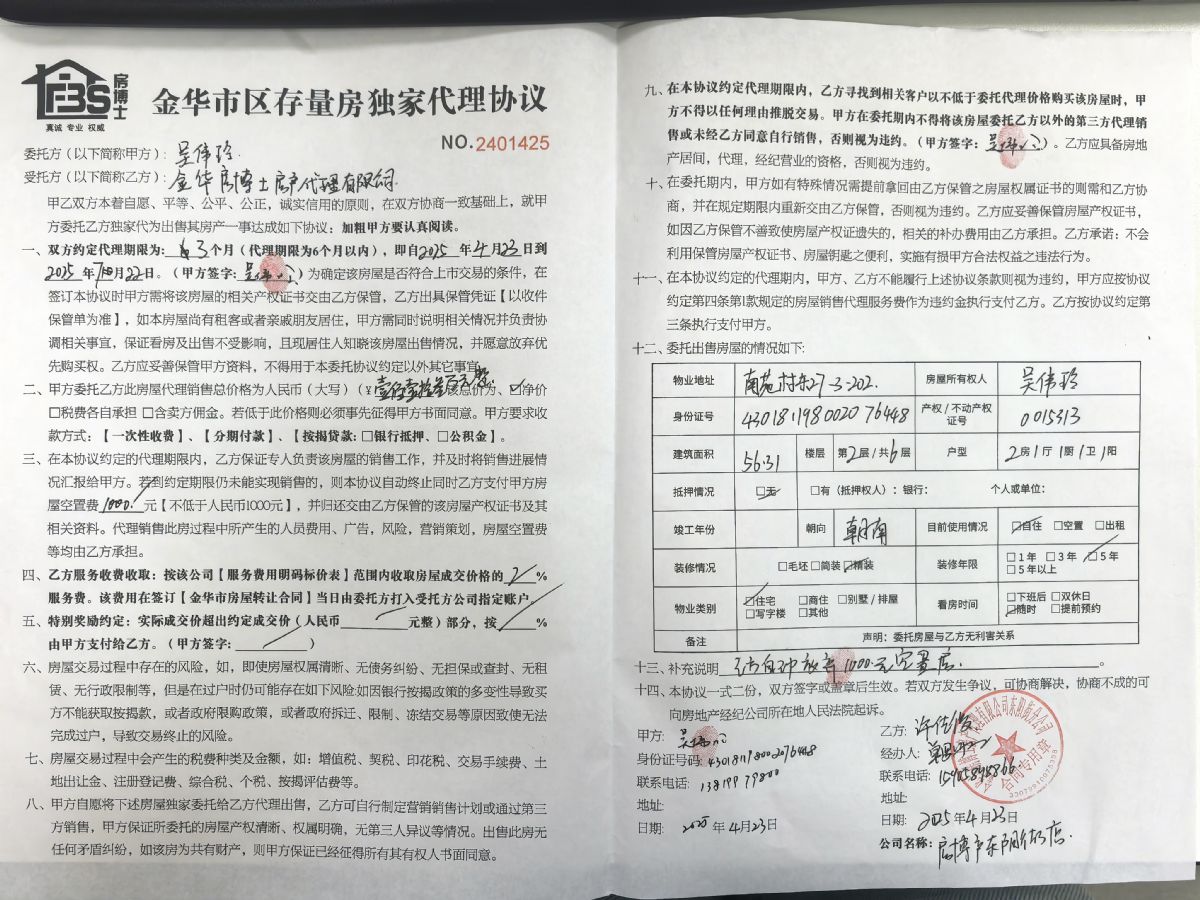 FBS
房博士
真诚 专业 权威
金华市区存量房独家代理协议
NO.2401425
委托方（以下简称甲方）：吴伟玲
受托方（以下简称乙方）：金华房博士房产代理有限公司
甲乙双方本着自愿、平等、公平、公正，诚实信用的原则，在双方协商一致基础上，就甲
方委托乙方独家代为出售其房产一事达成如下协议：加粗甲方要认真阅读。
一、双方约定代理期限为：3个月（代理期限为6个月以内），即自2025年4月23日到
2025年 月22日。（甲方签字：吴伟玲）为确定该房屋是否符合上市交易的条件，在
签订本协议时甲方需将该房屋的相关产权证书交由乙方保管，乙方出具保管凭证【以收件
保管单为准】，如本房屋尚有租客或者亲戚朋友居住，甲方需同时说明相关情况并负责协
调相关事宜，保证看房及出售不受影响，且现居住人知晓该房屋出售情况，并愿意放弃优
先购买权。乙方应妥善保管甲方资料，不得用于本委托协议约定以外其它事宜。
二、甲方委托乙方此房屋代理销售总价格为人民币（大写）（¥ 该总价为、☑净价
□税费各自承担 □含卖方佣金。若低于此价格则必须事先征得甲方书面同意。甲方要求收
款方式：【一次性收费】、【分期付款】、【按揭贷款：□银行抵押、□公积金】。
三、在本协议约定的代理期限内，乙方保证专人负责该房屋的销售工作，并及时将销售进展情
况汇报给甲方。若到约定期限仍未能实现销售的，则本协议自动终止同时乙方支付甲方房
屋空置费1000元【不低于人民币1000元】，并归还交由乙方保管的该房屋产权证书及其
相关资料。代理销售此房过程中所产生的人员费用、广告，风险，营销策划，房屋空置费
等均由乙方承担。
四、乙方服务收费收取：按该公司【服务费用明码标价表】范围内收取房屋成交价格的2%
服务费。该费用在签订【金华市房屋转让合同】当日由委托方打入受托方公司指定账户。
五、特别奖励约定：实际成交价超出约定成交价（人民币 元整）部分，按 %
由甲方支付给乙方。（甲方签字： ）
六、房屋交易过程中存在的风险，如，即使房屋权属清晰、无债务纠纷、无担保或查封、无租
赁、无行政限制等，但是在过户时仍可能存在如下风险:如因银行按揭政策的多变性导致买
方不能获取按揭款，或者政府限购政策，或者政府拆迁、限制、冻结交易等原因致使无法
完成过户，导致交易终止的风险。
七、房屋交易过程中会产生的税费种类及金额，如：增值税、契税、印花税、交易手续费、土
地出让金、注册登记费、综合税、个税、按揭评估费等。
八、甲方自愿将下述房屋独家委托给乙方代理出售，乙方可自行制定营销销售计划或通过第三
方销售，甲方保证所委托的房屋产权清晰、权属明确，无第三人异议等情况。出售此房无
任何矛盾纠纷，如该房为共有财产，则甲方保证已经征得所有其有权人书面同意。
九、在本协议约定代理期限内，乙方寻找到相关客户以不低于委托代理价格购买该房屋时，甲
方不得以任何理由推脱交易。甲方在委托期内不得将该房屋委托乙方以外的第三方代理销
售或未经乙方同意自行销售，否则视为违约。（甲方签字：吴伟玲）。乙方应具备房地
产居间，代理，经纪营业的资格，否则视为违约。
十、在委托期内，甲方如有特殊情况需提前拿回由乙方保管之房屋权属证书的则需和乙方协
商，并在规定期限内重新交由乙方保管，否则视为违约。乙方应妥善保管房屋产权证书，
如因乙方保管不善致使房屋产权证遗失的，相关的补办费用由乙方承担。乙方承诺：不会
利用保管房屋产权证书、房屋钥匙之便利，实施有损甲方合法权益之违法行为。
十一、在本协议约定的代理期内，甲方、乙方不能履行上述协议条款则视为违约，甲方应按协议
约定第四条第1款规定的房屋销售代理服务费作为违约金执行支付乙方。乙方按协议约定第
三条执行支付甲方。
十二、委托出售房屋的情况如下：
物业地址 南苑村东27-3-202. 房屋所有权人 吴伟玲
身份证号 430181198002076448 产权/不动产权证号 0015313
建筑面积 56.31 楼层 第2层/共6层 户型 2房1厅1厨1卫1阳
抵押情况 ☑无 □有（抵押权人）：银行： 个人或单位：
竣工年份 朝向 朝南 目前使用情况 ☑自住 □空置 □出租
装修情况 □毛坯 □简装 ☑精装 装修年限 □1年 □3年 ☑5年
□5年以上
物业类别 ☑住宅 □商住 □别墅/排屋 看房时间 □下班后 □双休日
□写字楼 □其他 ☑随时 □提前预约
备注 声明：委托房屋与乙方无利害关系
十三、补充说明 1000元空置费.
十四、本协议一式二份，双方签字或盖章后生效。若双方发生争议，可协商解决，协商不成的可
向房地产经纪公司所在地人民法院起诉。
甲方：吴伟玲
身份证号码：430181198002076448
联系电话：13819979800
地址：
日期：2025年4月23日
乙方：许佳俊
经办人：
联系电话：15905898866
地址：
日期：2025年4月23日
公司名称：房博士东阳街店.
合同专用章